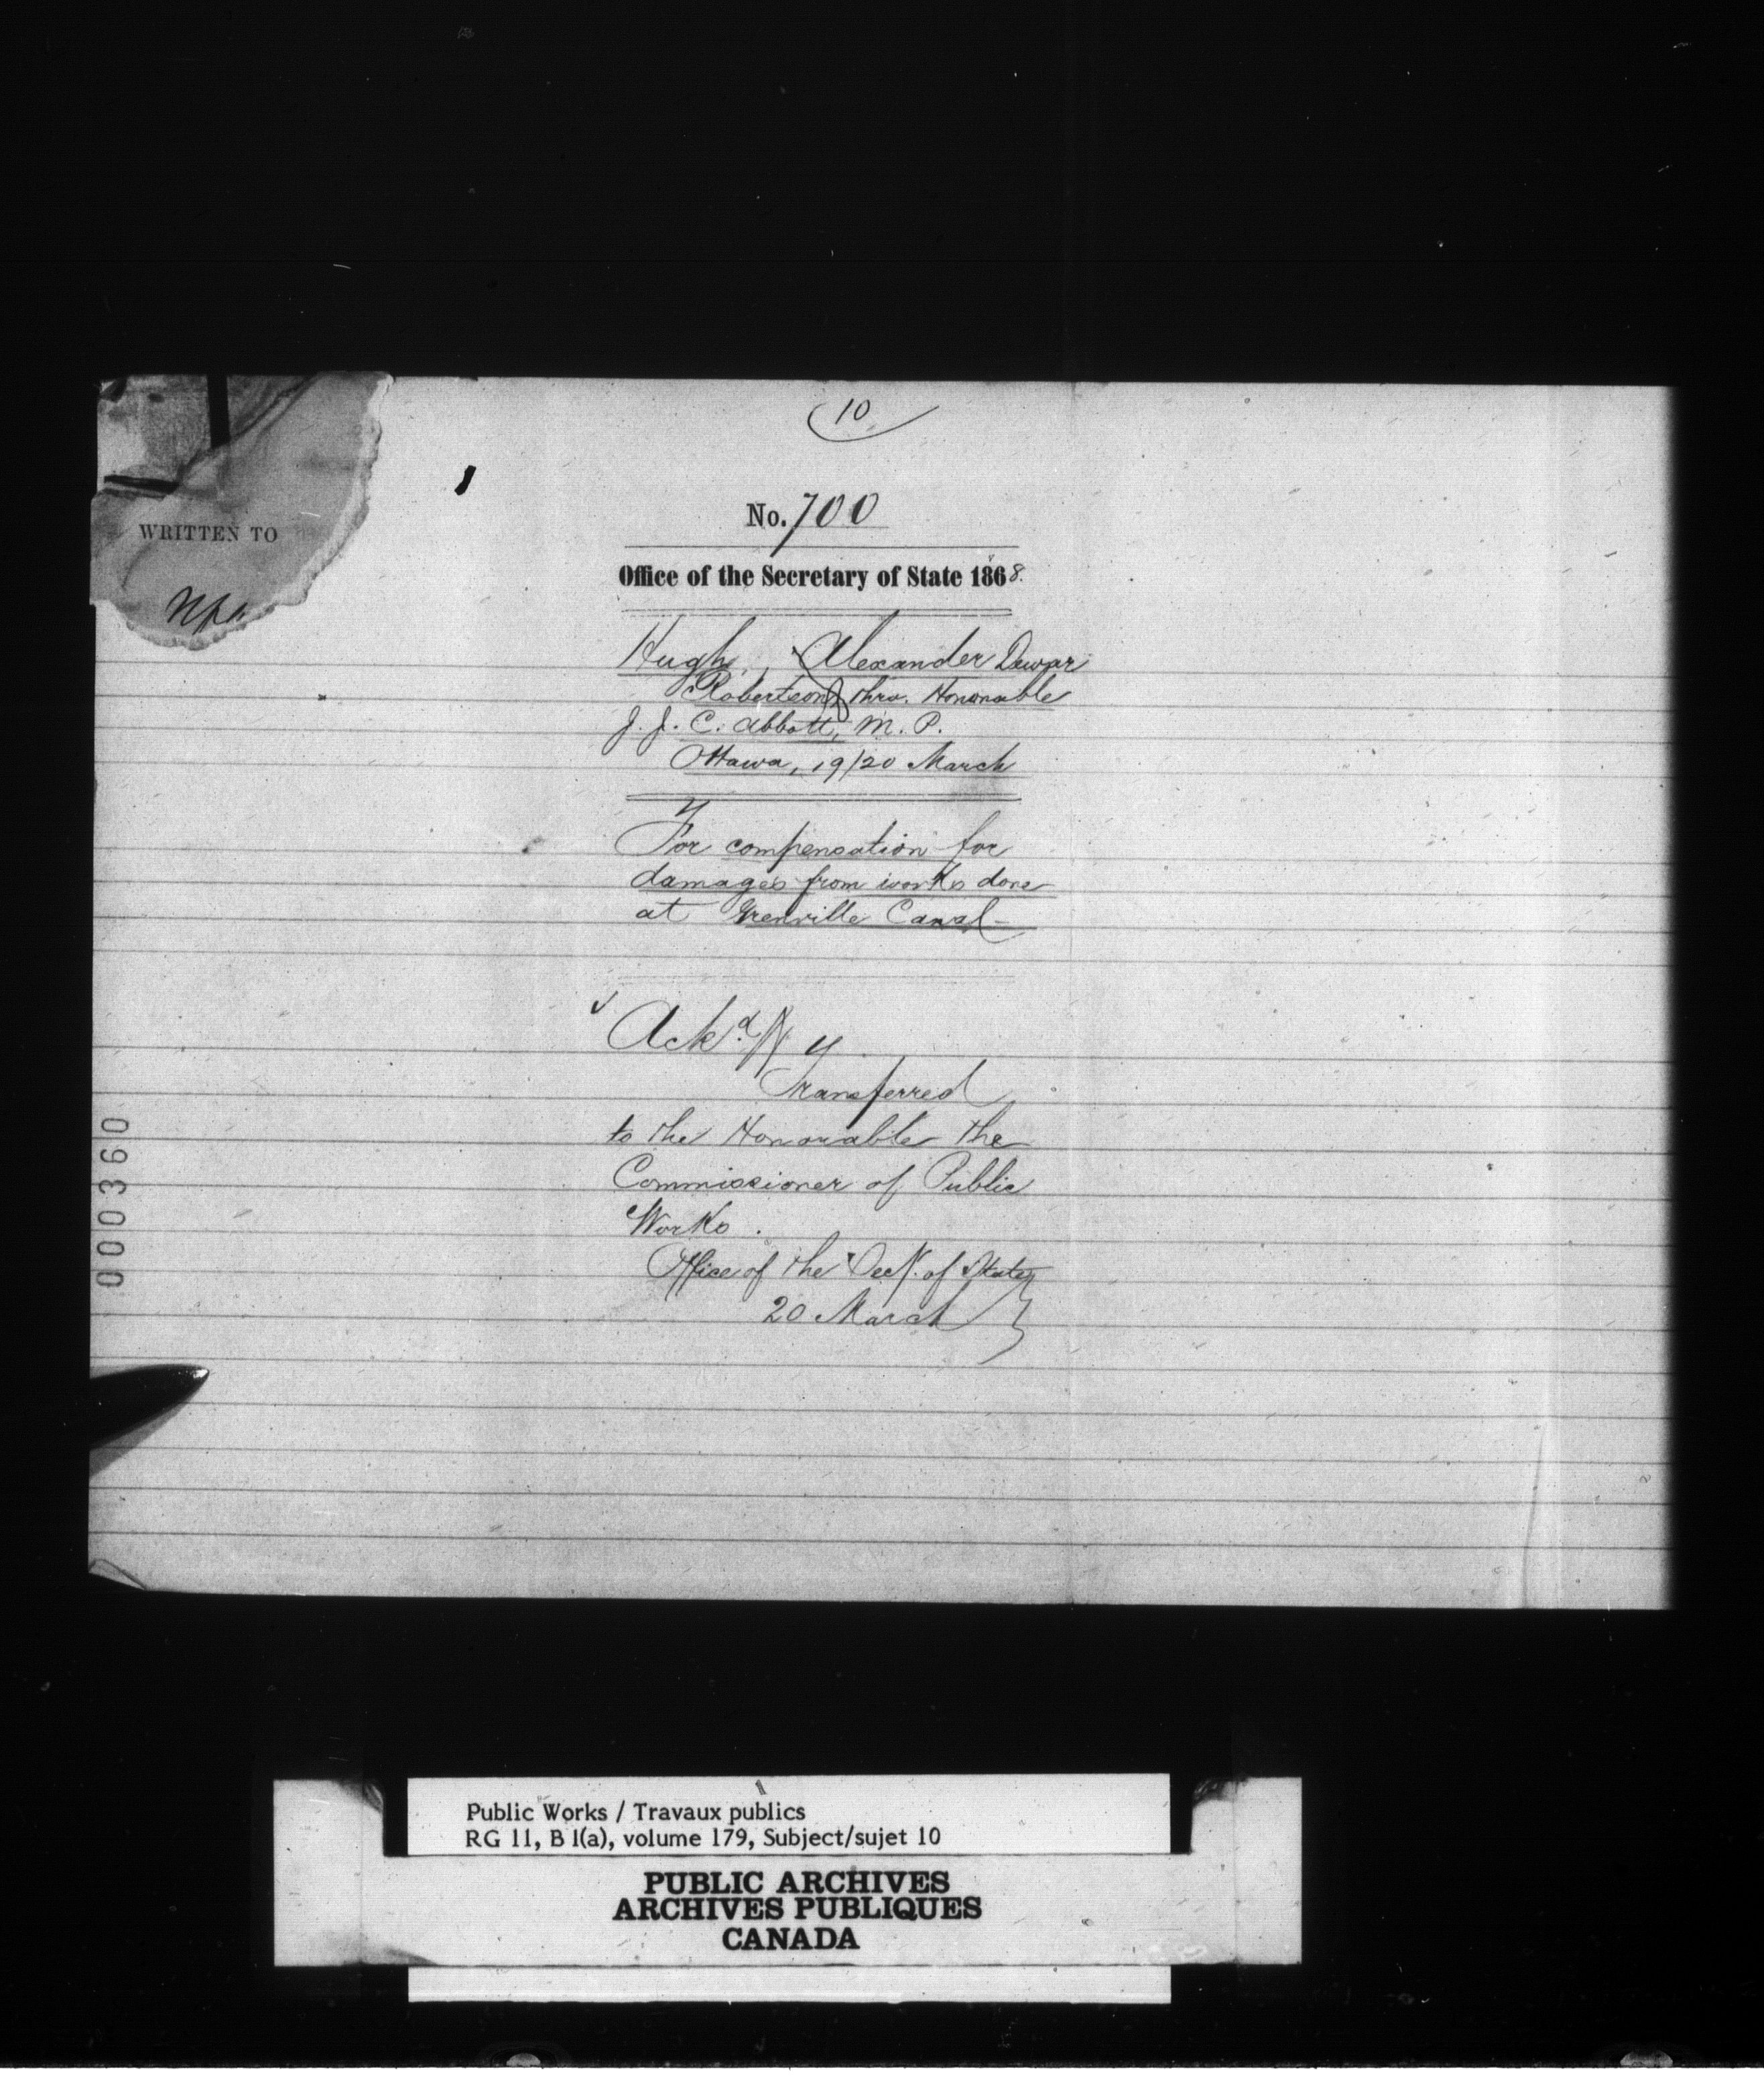 10
No. 700
WRITTEN TO
Office of the Secretary of State 1868.
Hugh, Alexander Dewar
Robertson, thro. Honorable
J. J. C. Abbott, M. P.
Ottawa, 19/20 March
For compensation for
damages from works done
at Grenville Canal
Ackd.
Transferred
to the Honorable the
Commissioner of Public
Works.
Office of the Secy. of State
20 March
000360
Public Works / Travaux publics
RG 11, B 1(a), volume 179, Subject/sujet 10
PUBLIC ARCHIVES
ARCHIVES PUBLIQUES
CANADA